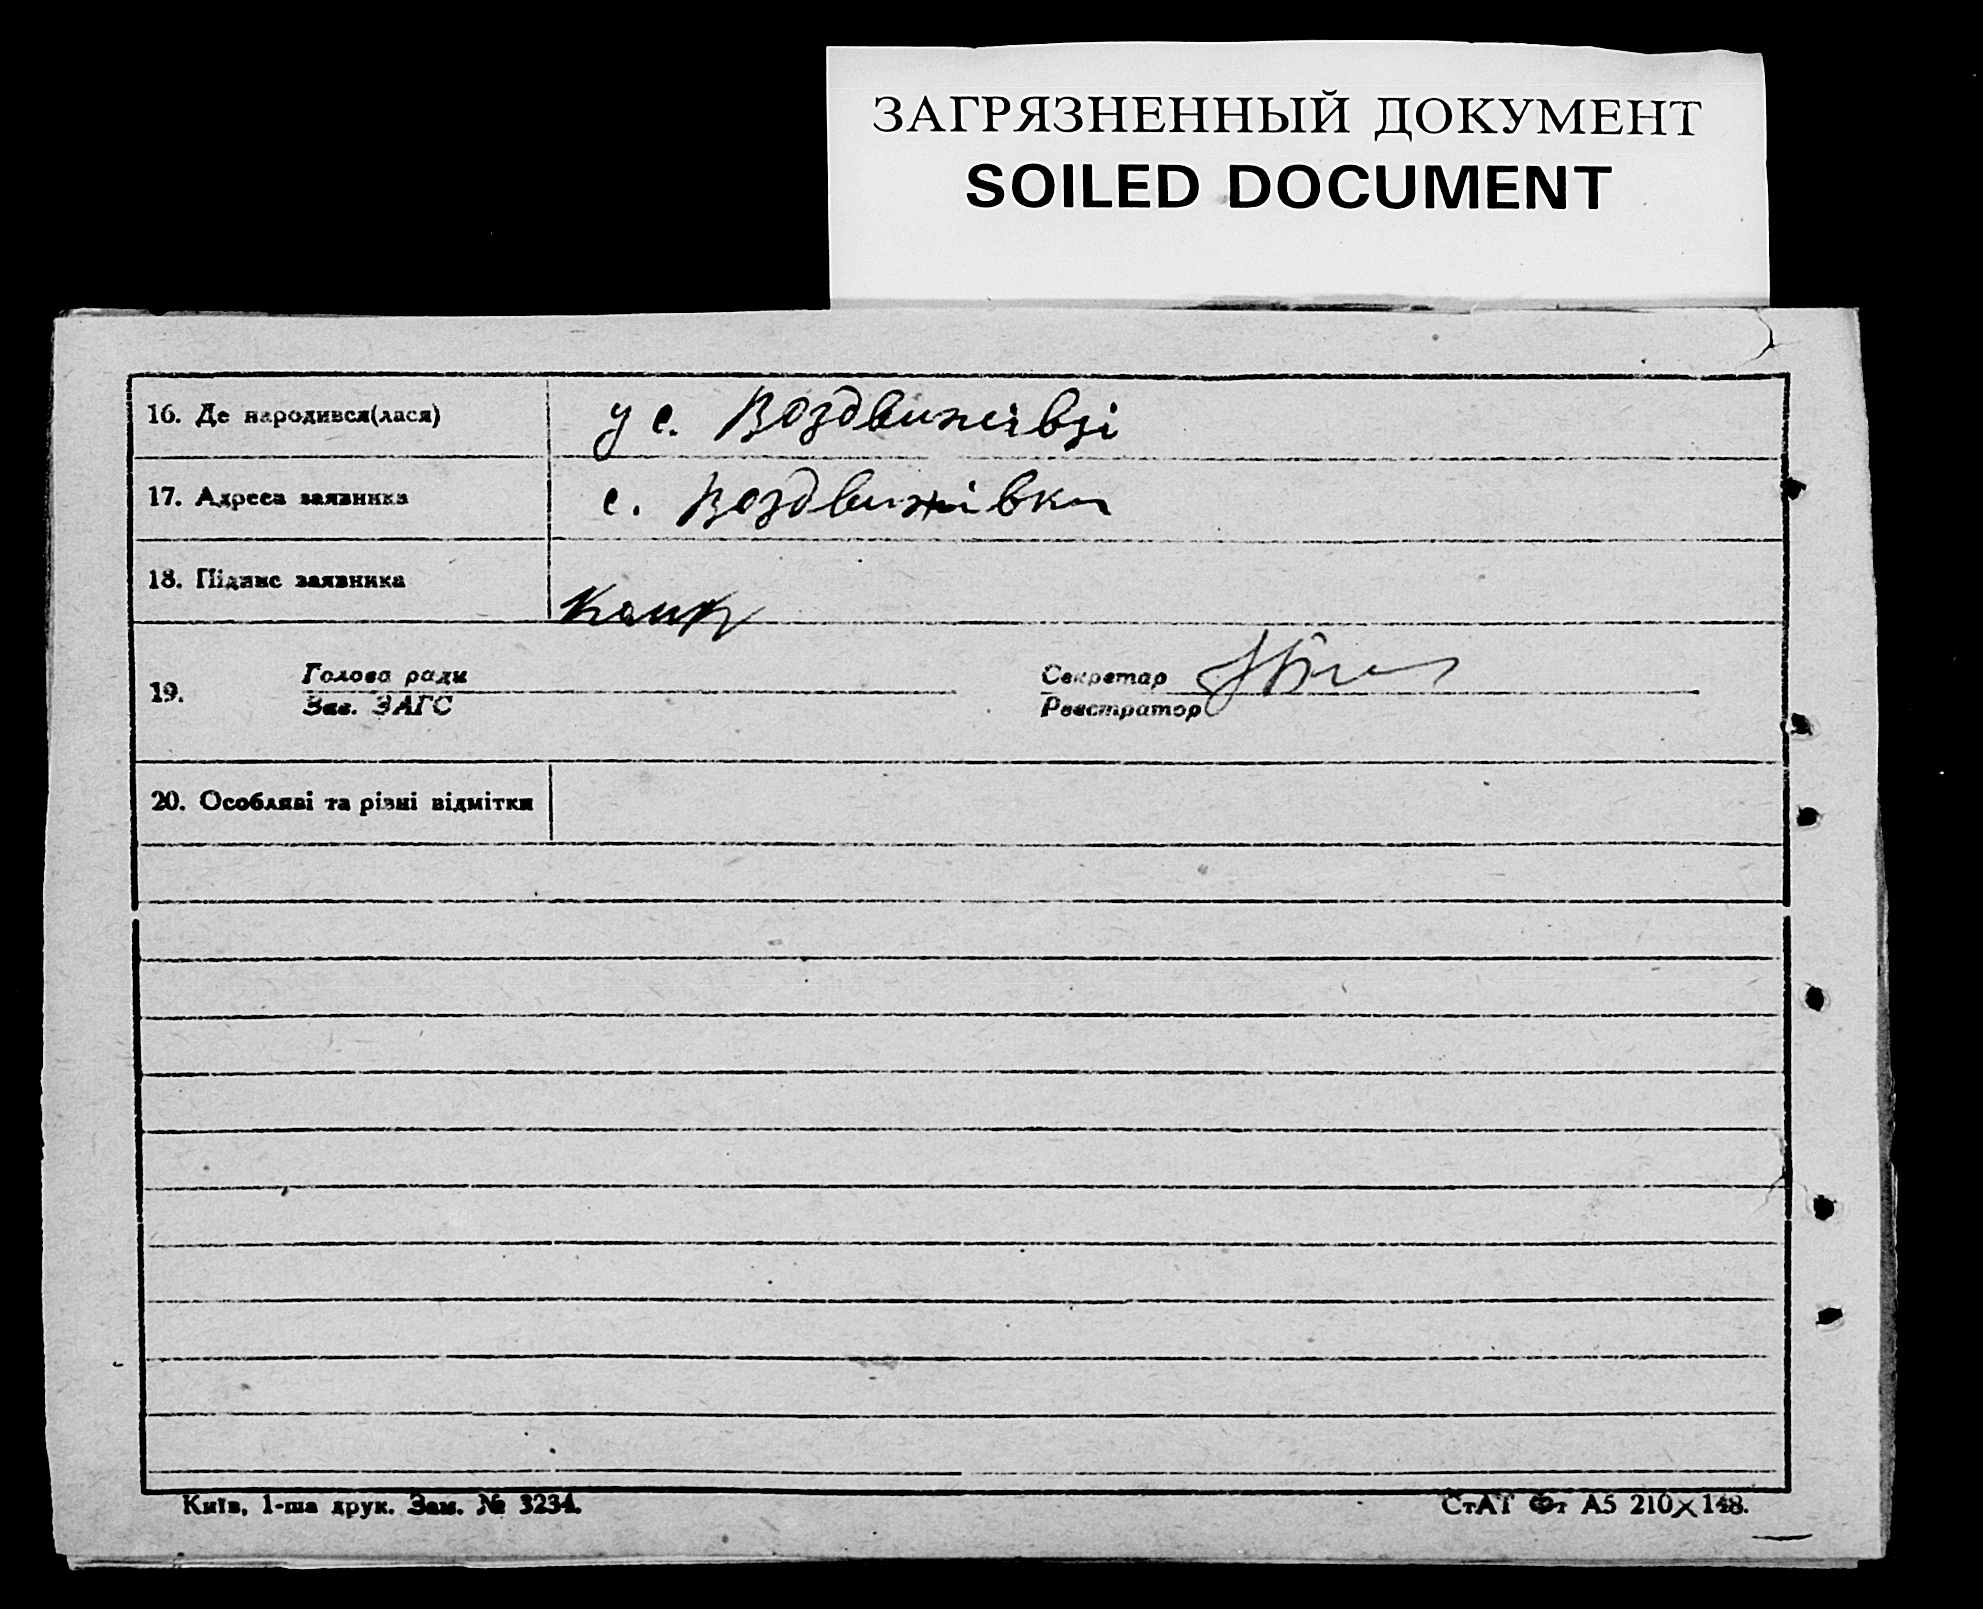 ЗАГРЯЗНЕННЫЙ ДОКУМЕНТ
SOILED DOCUMENT
16. Де народився(лася) у с. Воздвиженівці
17. Адреса заявника с. Воздвижівка
18. Підпис заявника
19. Голова ради Секретар
Зав. ЗАГС Реєстратор
20. Особливі та різні відмітки
Київ, 1-ша друк. Зам. № 3234. СтАТ Фт А5 210×148.